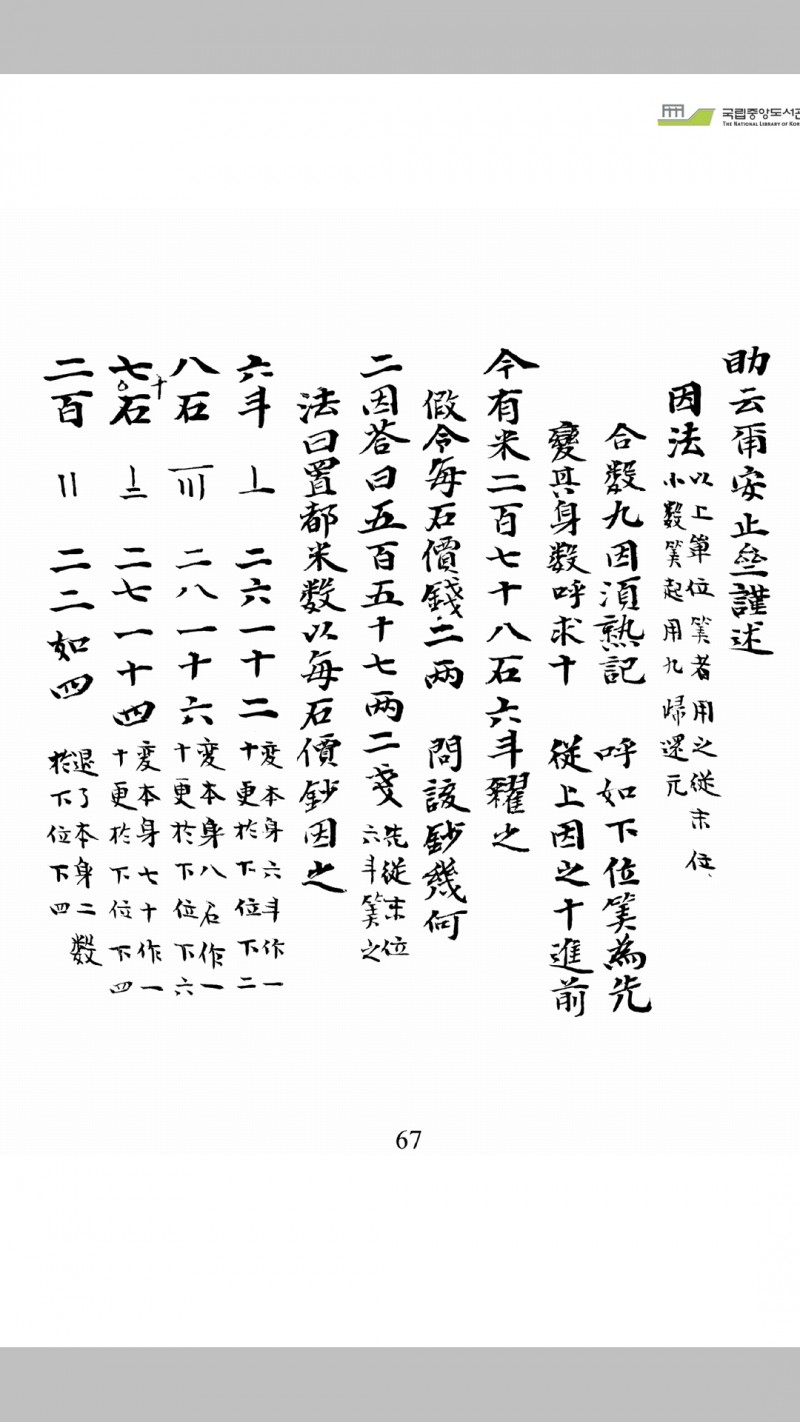 국립중앙도서관
THE NATIONAL LIBRARY OF KOR
助云爾安止壘謹述
因法 以上單位筭者用之從末位
小數筭起用九歸還元
合數九因湏熟記 呼如下位筭為先
變其身數呼求十 從上因之十進前
今有米二百七十八石六斗糶之
假令每石價錢二两 問該鈔幾何
二因荅曰五百五十七两二戔 先從末位
六斗筭之
法曰置都米数以每石價鈔因之
六斗 〡 二六一十二 变本身六斗作一
十更於下位下二
八石 二八一十六 变本身八石作一
十更於下位下六
七十石 二七一十四 变本身七十作一
十更於下位下四
二百 〢 二二如四 退了本身二數
於下位下四
67